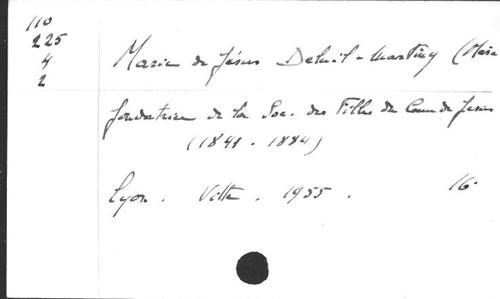 110
225
4
2
Marie de Jésus Deluil-Martiny (Mère
fondatrice de la Soc. des Filles du Coeur de Jésus
(1841 - 1884)
Lyon. Vitte. 1955. 16°